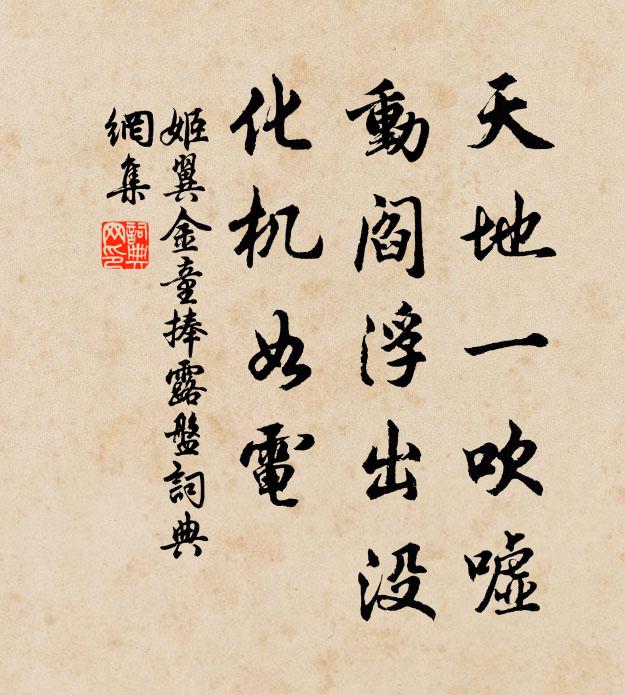 天地一吹嘘
動阎浮出没
化机如電
姬翼金童捧露盤詞典
網集
詞典
网印